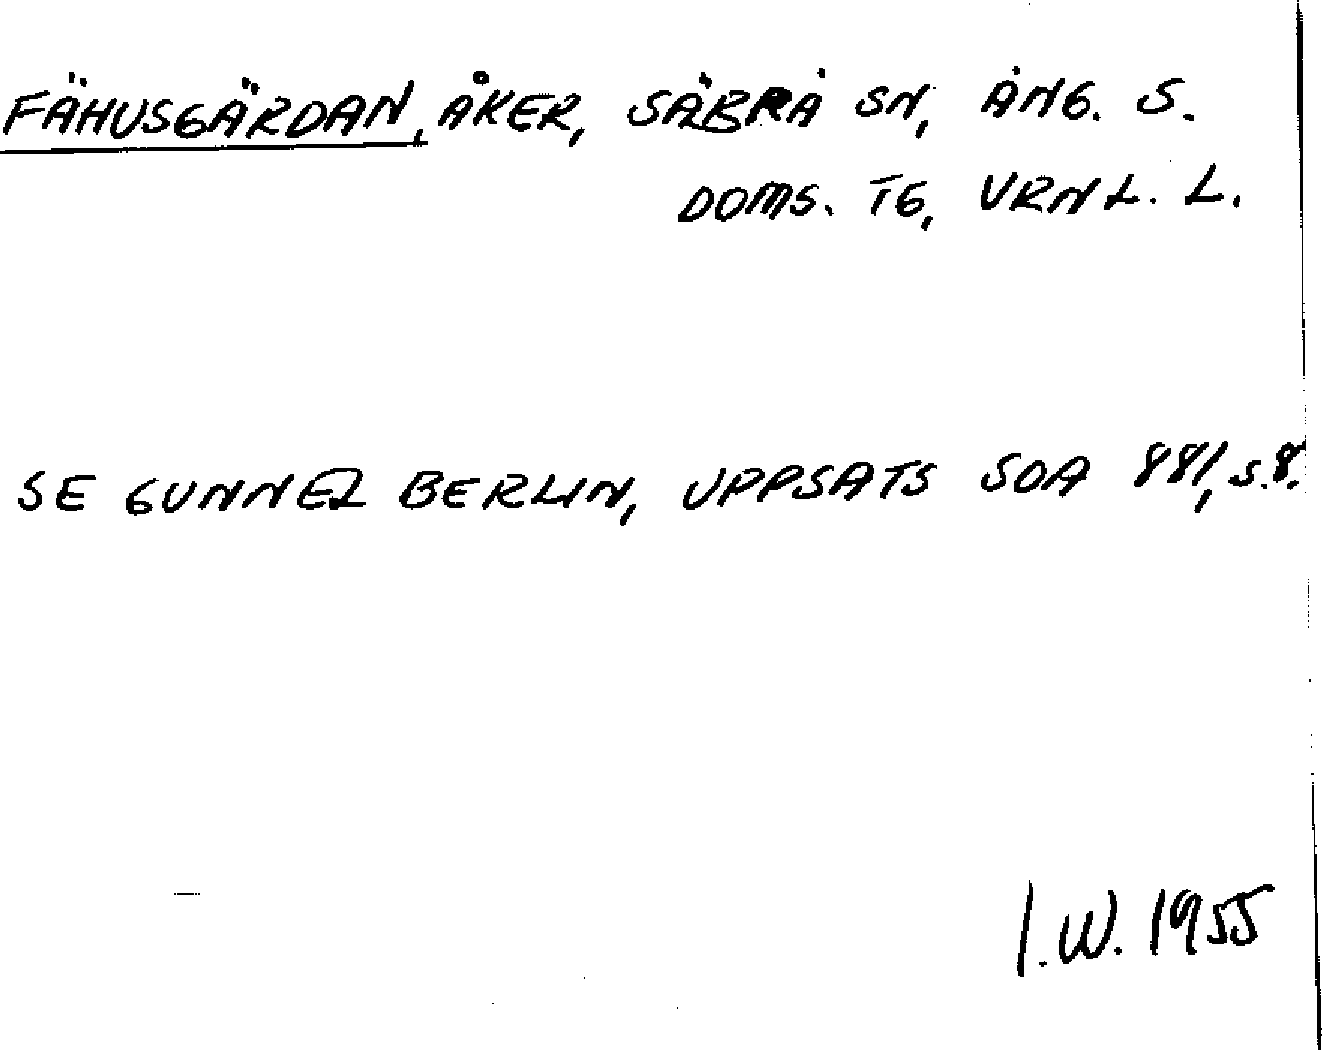 FÄHUSGÄRDAN, ÅKER, SÄBRÅ SN, ÅNG. S.
DOMS. TG, VRNL. L.
SE GUNNEL BERLIN, UPPSATS SOA 881, S.8.
I.W. 1955